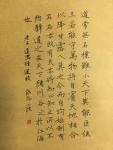 道常無名樸雖小天下莫能臣侯
王若能守之萬物將自賓天地相合
以降甘露人莫之令而自均始制有
名名亦既有夫亦將知止知止所以不
殆譬道之在天下猶川谷之於江海
老子道德經